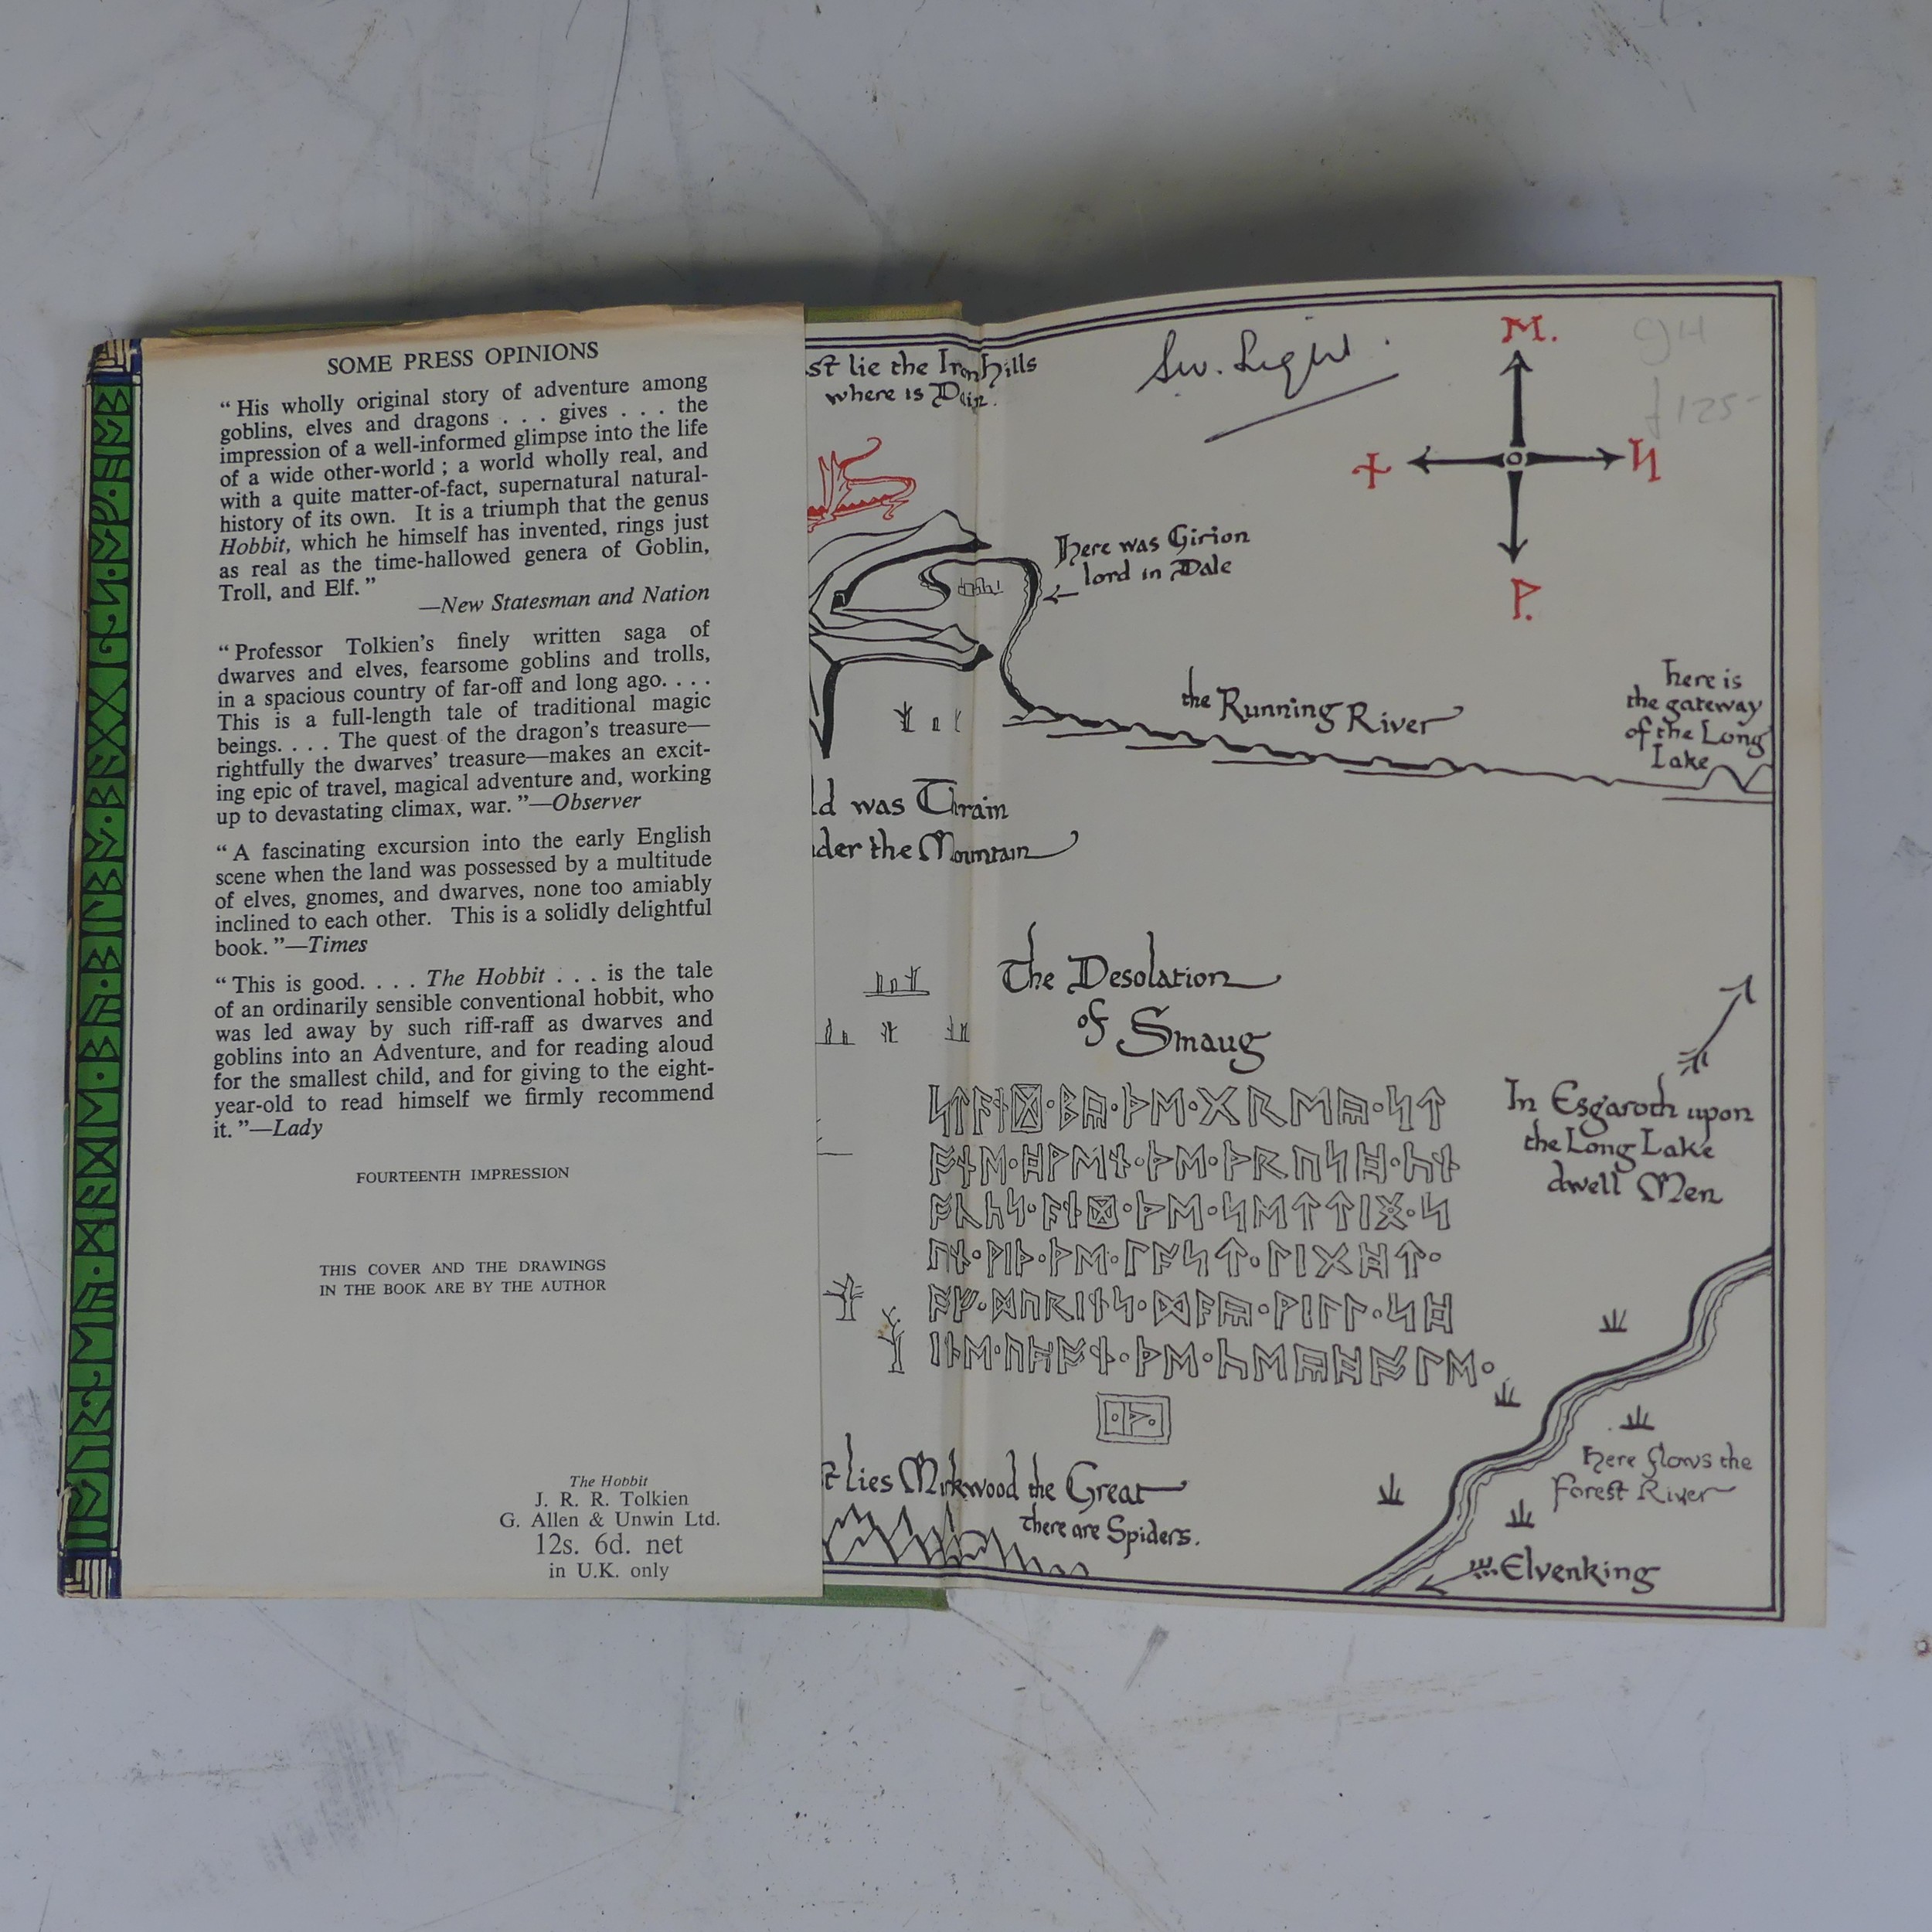 SOME PRESS OPINIONS
“ His wholly original story of adventure among
goblins, elves and dragons . . . gives . . . the
impression of a well-informed glimpse into the life
of a wide other-world ; a world wholly real, and
with a quite matter-of-fact, supernatural natural-
history of its own. It is a triumph that the genus
Hobbit, which he himself has invented, rings just
as real as the time-hallowed genera of Goblin,
Troll, and Elf. ”
—New Statesman and Nation
“ Professor Tolkien’s finely written saga of
dwarves and elves, fearsome goblins and trolls,
in a spacious country of far-off and long ago. . . .
This is a full-length tale of traditional magic
beings. . . . The quest of the dragon’s treasure—
rightfully the dwarves’ treasure—makes an excit-
ing epic of travel, magical adventure and, working
up to devastating climax, war. ”—Observer
“ A fascinating excursion into the early English
scene when the land was possessed by a multitude
of elves, gnomes, and dwarves, none too amiably
inclined to each other. This is a solidly delightful
book. ”—Times
“ This is good. . . . The Hobbit . . . is the tale
of an ordinarily sensible conventional hobbit, who
was led away by such riff-raff as dwarves and
goblins into an Adventure, and for reading aloud
for the smallest child, and for giving to the eight-
year-old to read himself we firmly recommend
it. ”—Lady
FOURTEENTH IMPRESSION
THIS COVER AND THE DRAWINGS
IN THE BOOK ARE BY THE AUTHOR
The Hobbit
J. R. R. Tolkien
G. Allen & Unwin Ltd.
12s. 6d. net
in U.K. only
st lie the Iron Hills
where is Dain.
ᛖ.
ᚾ
ᛋ
ᚹ.
£125-
Here was Girion
lord in Dale
the Running River
here is
the gateway
of the Long
Lake
ld was Thrain
der the Mountain
The Desolation
of Smaug
ᛋᛏᚪᚾᛞ᛫ᛒᚣ᛫ᚦᛖ᛫ᚷᚱᛖᚣ᛫ᛋᛏ
ᚩᚾᛖ᛫ᚻᚹᛖᚾ᛫ᚦᛖ᛫ᚦᚱᚢᛋᚻ᛫ᚳᚾ
ᚩᚳᛋ᛫ᚪᚾᛞ᛫ᚦᛖ᛫ᛋᛖᛏᛏᛁᛝ᛫ᛋ
ᚢᚾ᛫ᚹᛁᚦ᛫ᚦᛖ᛫ᛚᚪᛋᛏ᛫ᛚᛁᚷᚻᛏ᛫
ᚩᚠ᛫ᛞᚢᚱᛁᚾᛋ᛫ᛞᚪᚣ᛫ᚹᛁᛚᛚ᛫ᛋᚻ
ᛁᚾᛖ᛫ᚢᛈᚩᚾ᛫ᚦᛖ᛫ᚳᛖᚣᚻᚩᛚᛖ᛫
᛫ᚦ᛫
In Esgaroth upon
the Long Lake
dwell Men
st lies Mirkwood the Great
there are Spiders.
Here flows the
Forest River
Elvenking